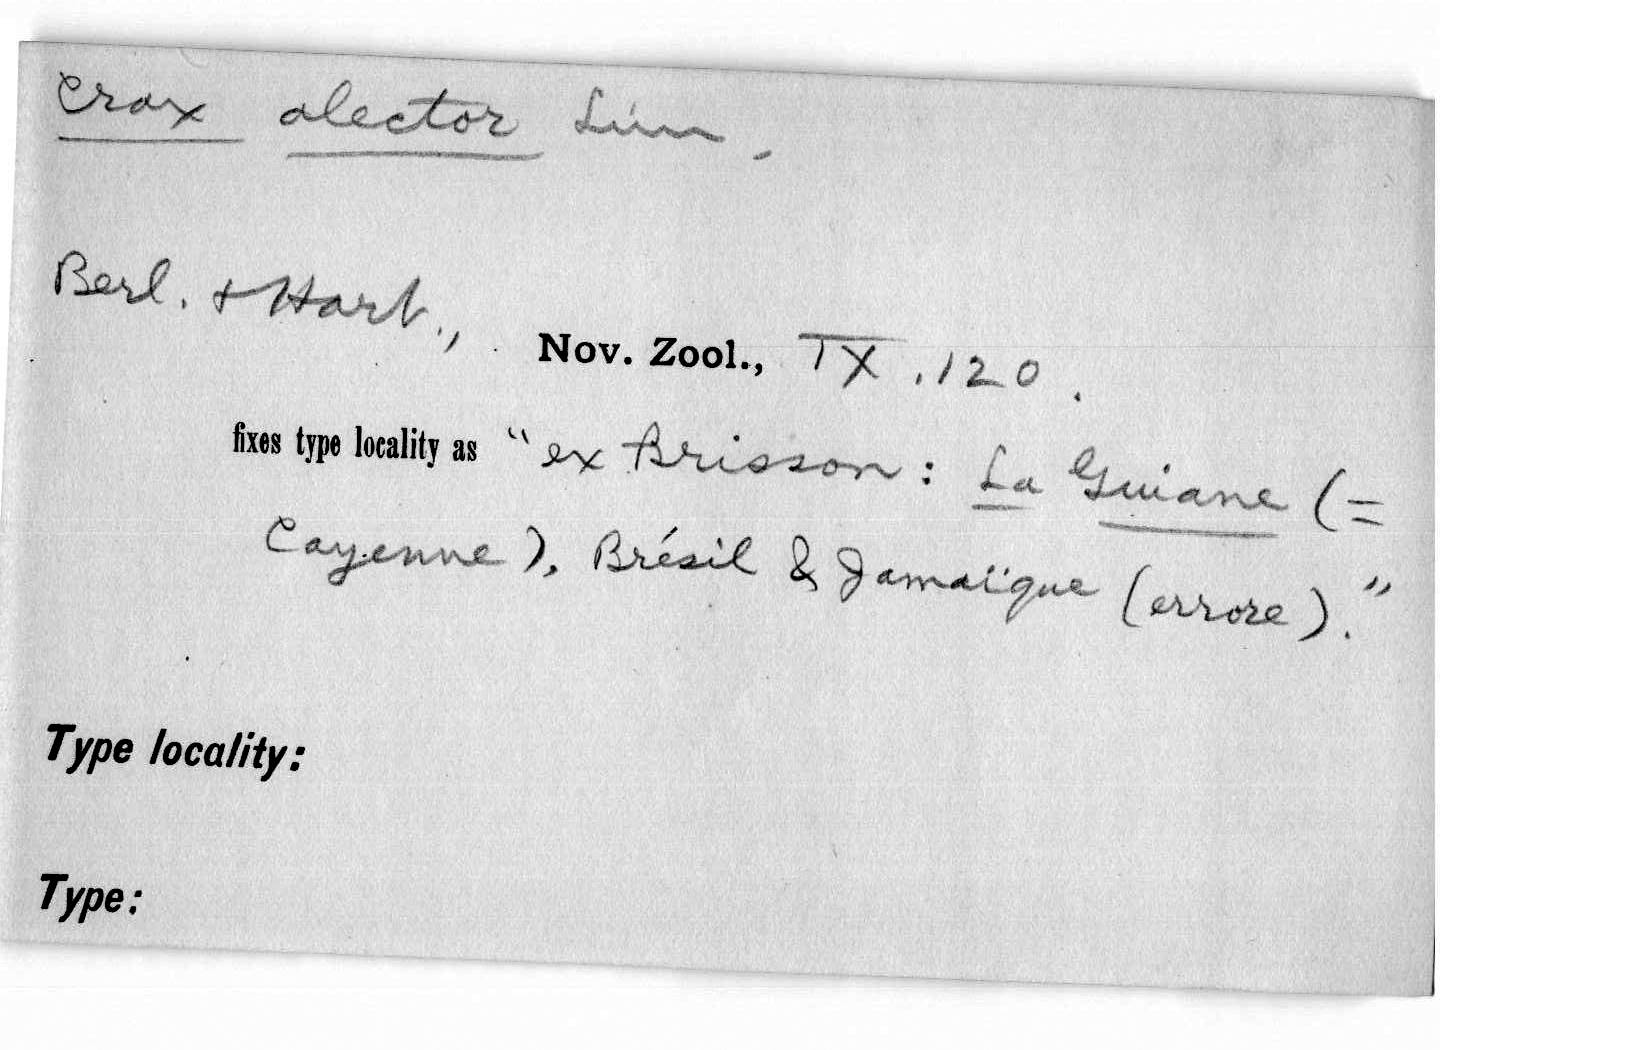 Crax alector Linn.
Berl. & Hart.,
Nov. Zool., IX, 120.
fixes type locality as "ex Brisson: La Guiane (=
Cayenne), Brésil & Jamaïque (errore)."
Type locality:
Type: